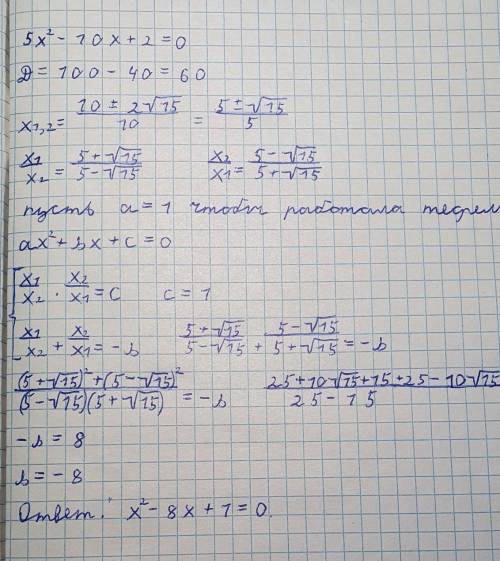 5x² - 10x + 2 = 0
D = 100 - 40 = 60
x1,2 = (10 ± 2√15)/10 = (5 ± √15)/5
x1/x2 = (5 + √15)/(5 - √15)    x2/x1 = (5 - √15)/(5 + √15)
пусть a = 1 чтобы работала
ax² + bx + c = 0
x1/x2 · x2/x1 = c    c = 1
x1/x2 + x2/x1 = -b    (5 + √15)/(5 - √15) + (5 - √15)/(5 + √15) = -b
((5 + √15)² + (5 - √15)²)/((5 - √15)(5 + √15)) = -b    (25 + 10√15 + 15 + 25 - 10√15)/(25 - 15)
-b = 8
b = -8
Ответ: x² - 8x + 1 = 0.